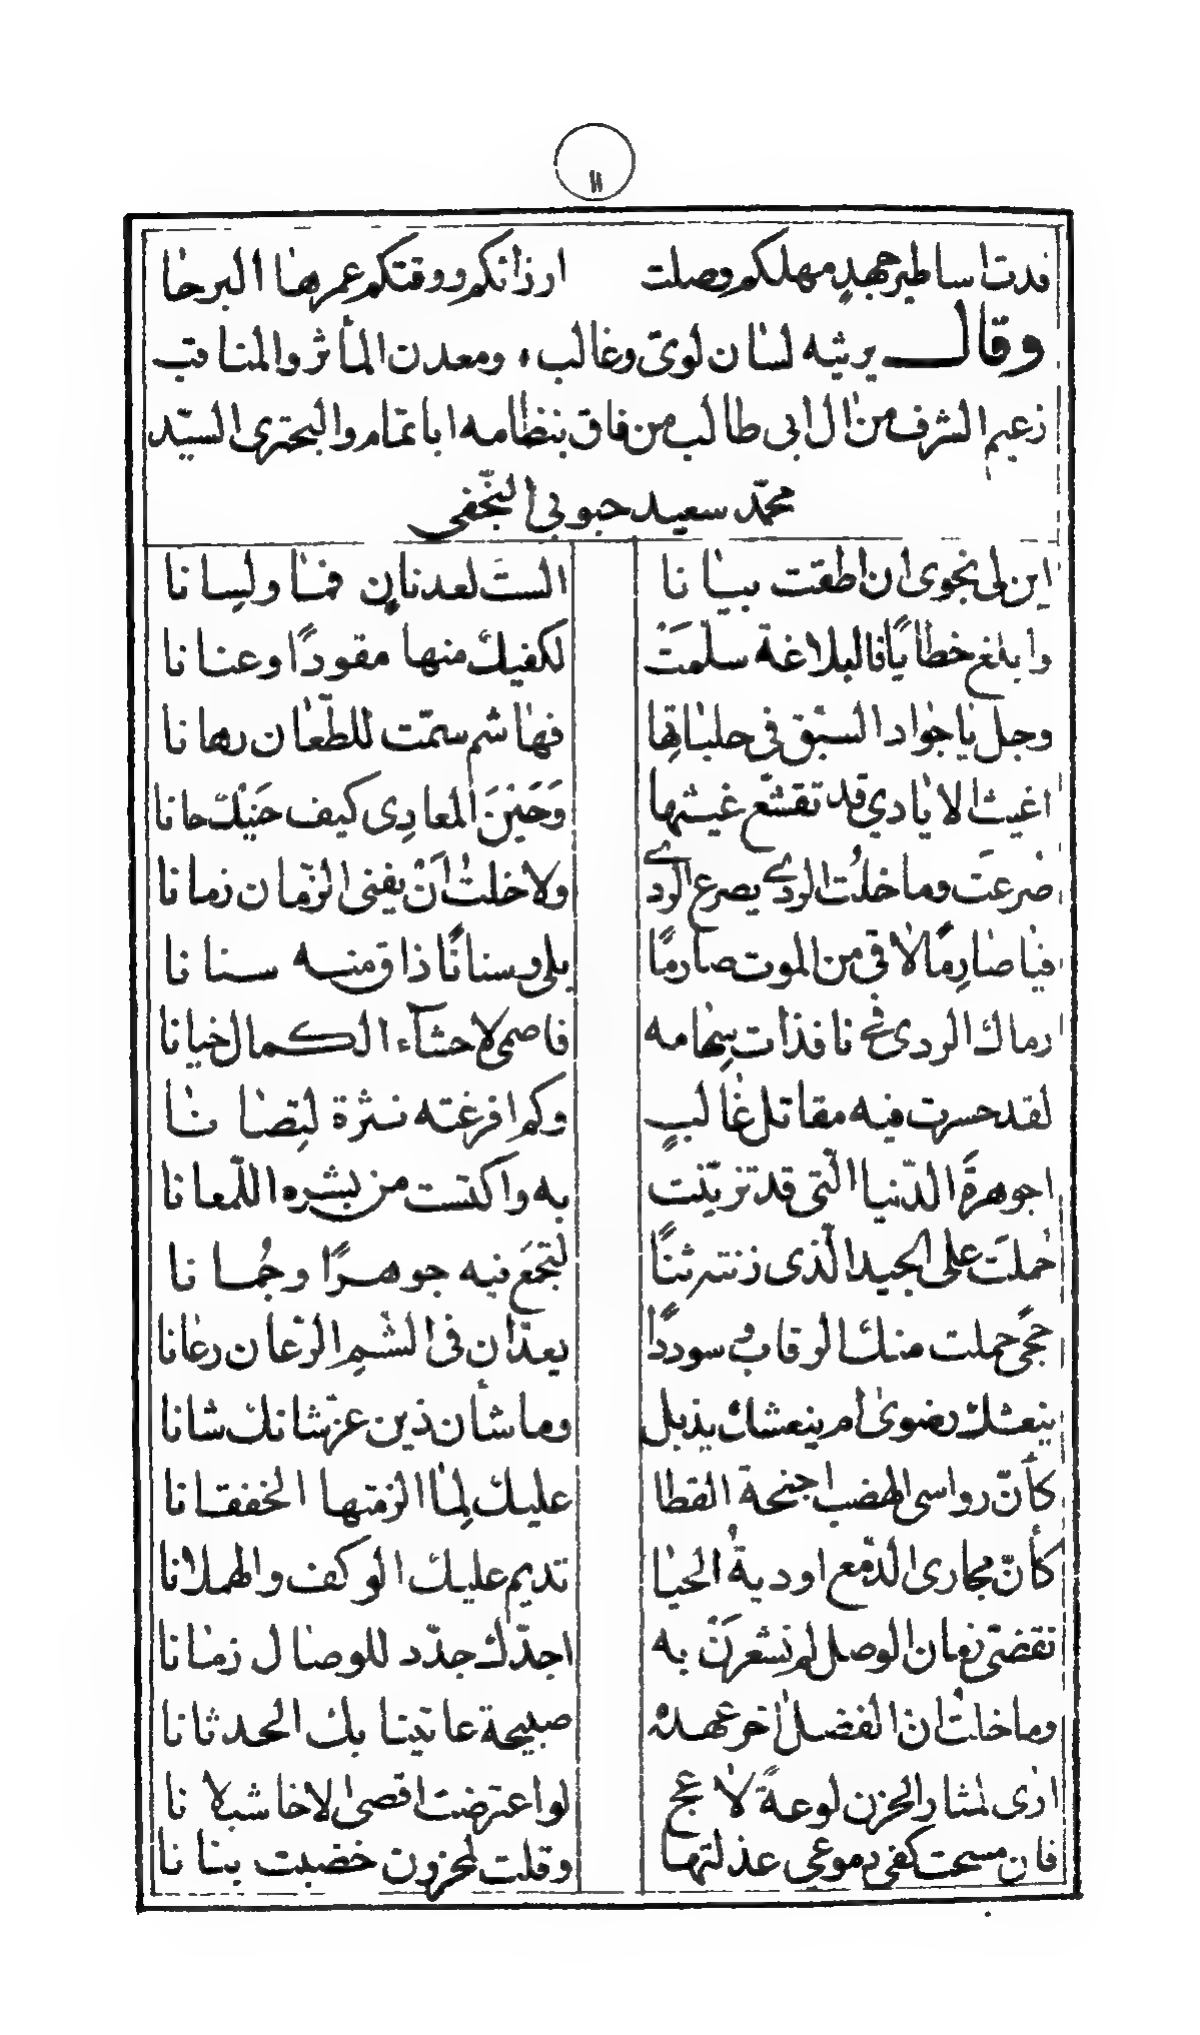 ١١
فدت اساطير جهد مهلكم وصلت ارزائكم ووقتكم عمرها البرحا
وقال يرثيه لسان لوى وغالب، ومعدن المأثر والمناقب
زعيم الشرف من ال ابى طالب من فاق بنظامه ابا تمام والبحترى السيّد
محمّد سعيد حبوبي النّجفى
ابن لى نجوى ان اطقت بيانا الستَ لعدنانٍ فما ولسانا
وابلغ خطابًا فالبلاغة سلّمتْ لكفيك منها مقودًا وعنانا
وجل يا جواد السبق فى حلباتها فهاشم ستمّت للطّعان رهانا
اغيث الايادي قد تقشّع غيثها وَحَيْنَ المعادِى كيف حَيْنك حانا
صُرعتَ وما خلتُ الردى يصرع الردى ولا خلتُ انْ يفنى الزّمان زمانا
فيا صارمًا لاقى من الموت صارمًا بلى وسنانًا ذاق منه سنانا
رماك الردى نافذات سهامه فاصمى لاحشآء الكمال خيانا
لقد حسرت فيه مقاتل غالبٍ وكم افرغته نثرة لتصانا
اجوهرةَ الدّنيا الّتى قد تزيّنت به واكتست من بشره اللّمعانا
حُملتَ على الجيد الّذى زنته ثنًا لتجمَع فيه جوهرًا وجُمانا
حجًى حملت منك الرقاب وسوددًا يعدّان فى الشّم الرّعان رعانا
بنعشك رضوىٰ ام بنعشك يذبل وما شأن ذين عزّ شانك شانا
كأنّ رواسى الهضب اجنحة القطا عليك لِما الزمتها الخفقانا
كأنّ مجارى الدّمع اوديةُ الحيا تديم عليك الوكف والهملانا
تقضّى زمان الوصل لم نشعرَنْ به اجدّك جدّد للوصال زمانا
وما خلتُ ان الفضل اخر عهده صبيحة عاتبنا بك الحدثانا
ارى لمثار الحزن لوعةً لاعج لو اعترضت اقصىٰ لاخاشب لانا
فان مسحت كفى دموعى عذلتها وقلت لمحزون خضبت بنانا